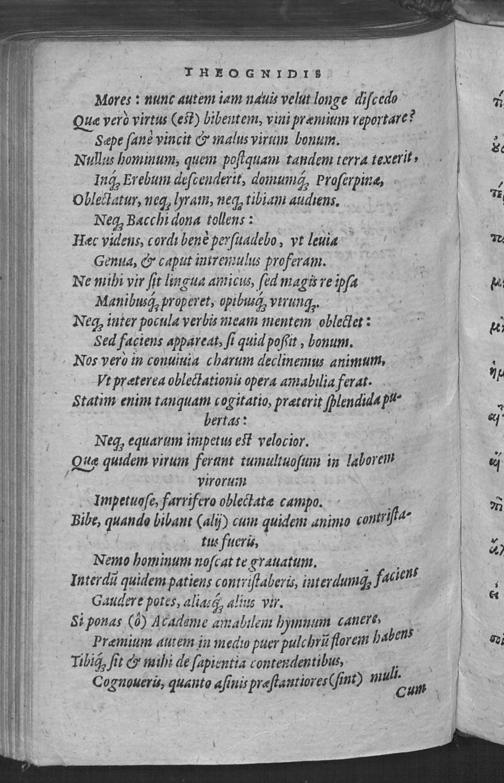 THEOGNIDIS
Mores : nunc autem iam nauis velut longe discedo
Quæ verò virtus (est) bibentem, vini præmium reportare?
Sæpe sanè vincit & malus virum bonum.
Nullus hominum, quem postquam tandem terra texerit,
Inq́ꝫ Erebum descenderit, domumq́ꝫ Proserpinæ,
Oblectatur, neqꝫ lyram, neqꝫ tibiam audiens.
Neqꝫ Bacchi dona tollens :
Hæc videns, cordi benè persuadebo, vt leuia
Genua, & caput intremulus proferam.
Ne mihi vir sit lingua amicus, sed magis re ipsa
Manibusq́ꝫ properet, opibusq́ꝫ virunqꝫ.
Neqꝫ inter pocula verbis meam mentem oblectet :
Sed faciens appareat, si quid poßit, bonum.
Nos verò in conuiuia charum declinemus animum,
Vt præterea oblectationis opera amabilia ferat.
Statim enim tanquam cogitatio, præterit splendida pu-
bertas :
Neqꝫ equarum impetus est velocior.
Quæ quidem virum ferunt tumultuosum in laborem
virorum
Impetuose, farrifero oblectatæ campo.
Bibe, quando bibant (alij) cum quidem animo contrista-
tus fueris,
Nemo hominum noscat te grauatum.
Interdū quidem patiens contristaberis, interdumq́ꝫ faciens
Gaudere potes, aliasq́ꝫ alius vir.
Si ponas (ô) Academe amabilem hymnum canere,
Præmium autem in medio puer pulchrū florem habens
Tibiq́ꝫ sit & mihi de sapientia contendentibus,
Cognoueris, quanto asinis præstantiores (sint) muli.
Cum